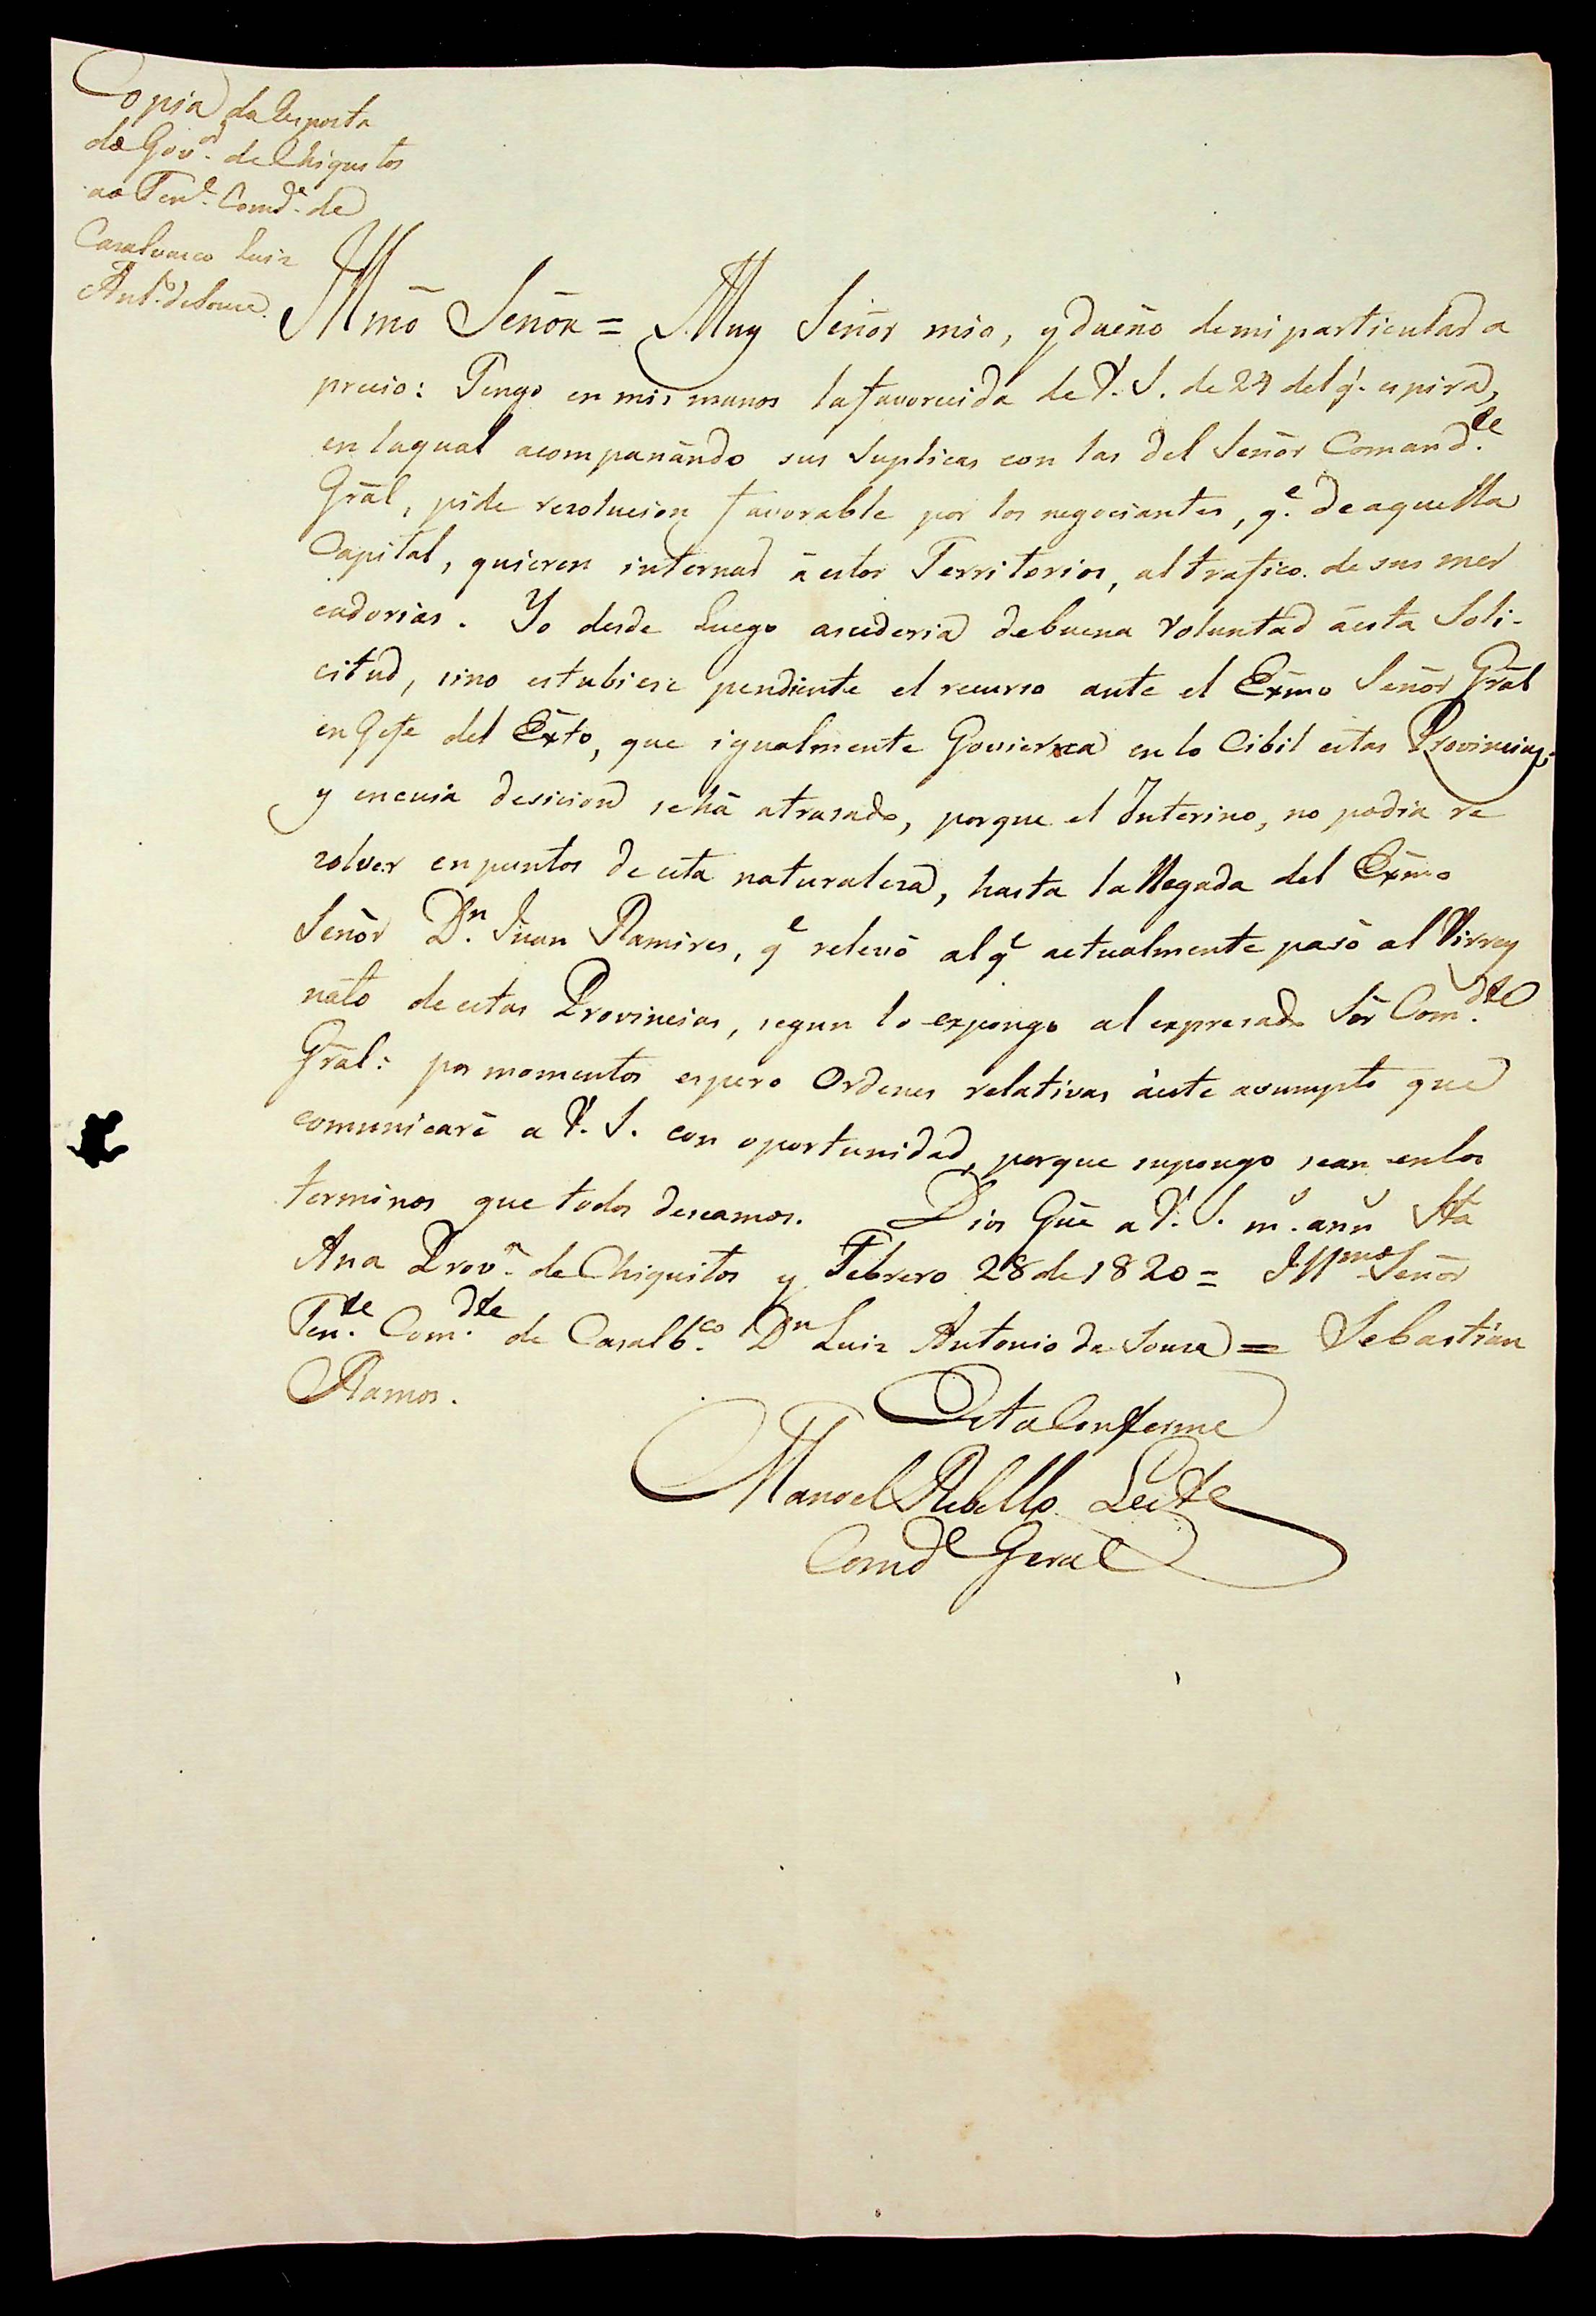 Copia da Resposta
do Gov.or de Chiquitos
ao Ten.e Comd.e de
Casalvasco Luiz
Ant.o de Souza.
Illmo Señor = Muy Señor mio, y dueño de mi particular a
precio: Tengo en mis manos la favorecida de V. S. de 24 del q.e espira,
en la qual acompañando sus Suplicas con las del Señor Comand.te
Grãl, pide resolucion favorable por los negociantes, q.e de aquella
Capital, quieren internar à estos Territorios, al trafico de sus mer
cadorias. Yo desde Luego accederia de buena Voluntad à esta Soli-
citud, sino estubiese pendiente el recurso ante el Exmo Señor Grãl
en Gefe del Exto, que igualmente Govierna en lo Cibil estas Provincias;
y en cuia desicion se hà atrasado, porque el Interino, no podia re
solver en puntos de esta naturalesa, hasta la llegada del Exmo
Señor D.n Juan Ramires, q.e relevò al q.e actualmente pasò al Virrey
nato de estas Provincias, segun lo expongo al expresado Sõr Com.dte
Grãl: por momentos espero Ordenes relativas à este asumpto que
comunicarè a V. S. con oportunidad, porque supongo sean en los
terminos que todos deseamos. Dios Gũe a V. S. m.s an.s Sta
Ana Prov.a de Chiquitos y Febrero 28 de 1820 = Illmo Señor
Ten.te Com.dte de Casalb.co Dn Luiz Antonio de Souza = Sebastian
Ramos.
Està Conforme
Manoel Rebello Leite
Comd.e Geral